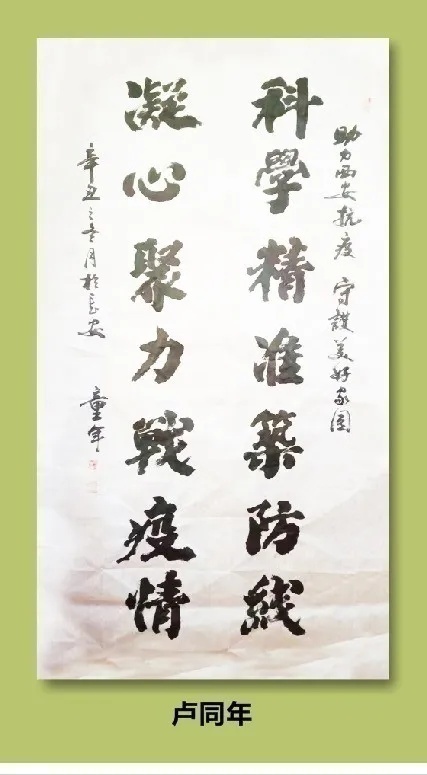 助力西安抗疫 守護美好家園
科學精准築防綫
凝心聚力戰疫情
辛丑之冬月於長安 童年
卢同年